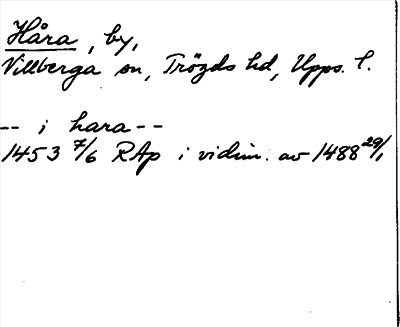 Håra, by,
Villberga sn, Trögds hd, Upps. l.
-- i hara --
1453 7/6 RAp i vidim. av 1488 29/1